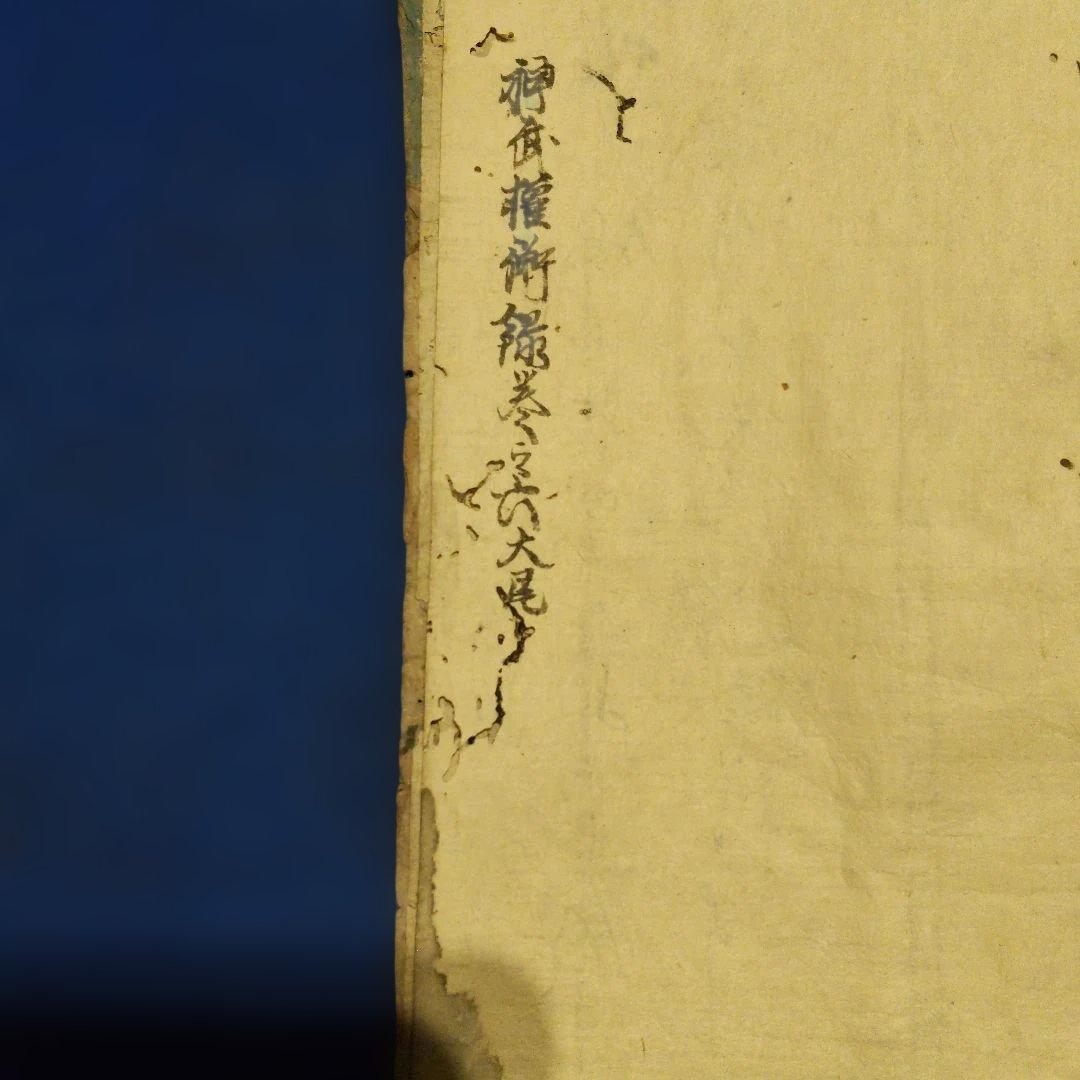 神武權衡録巻之六大尾